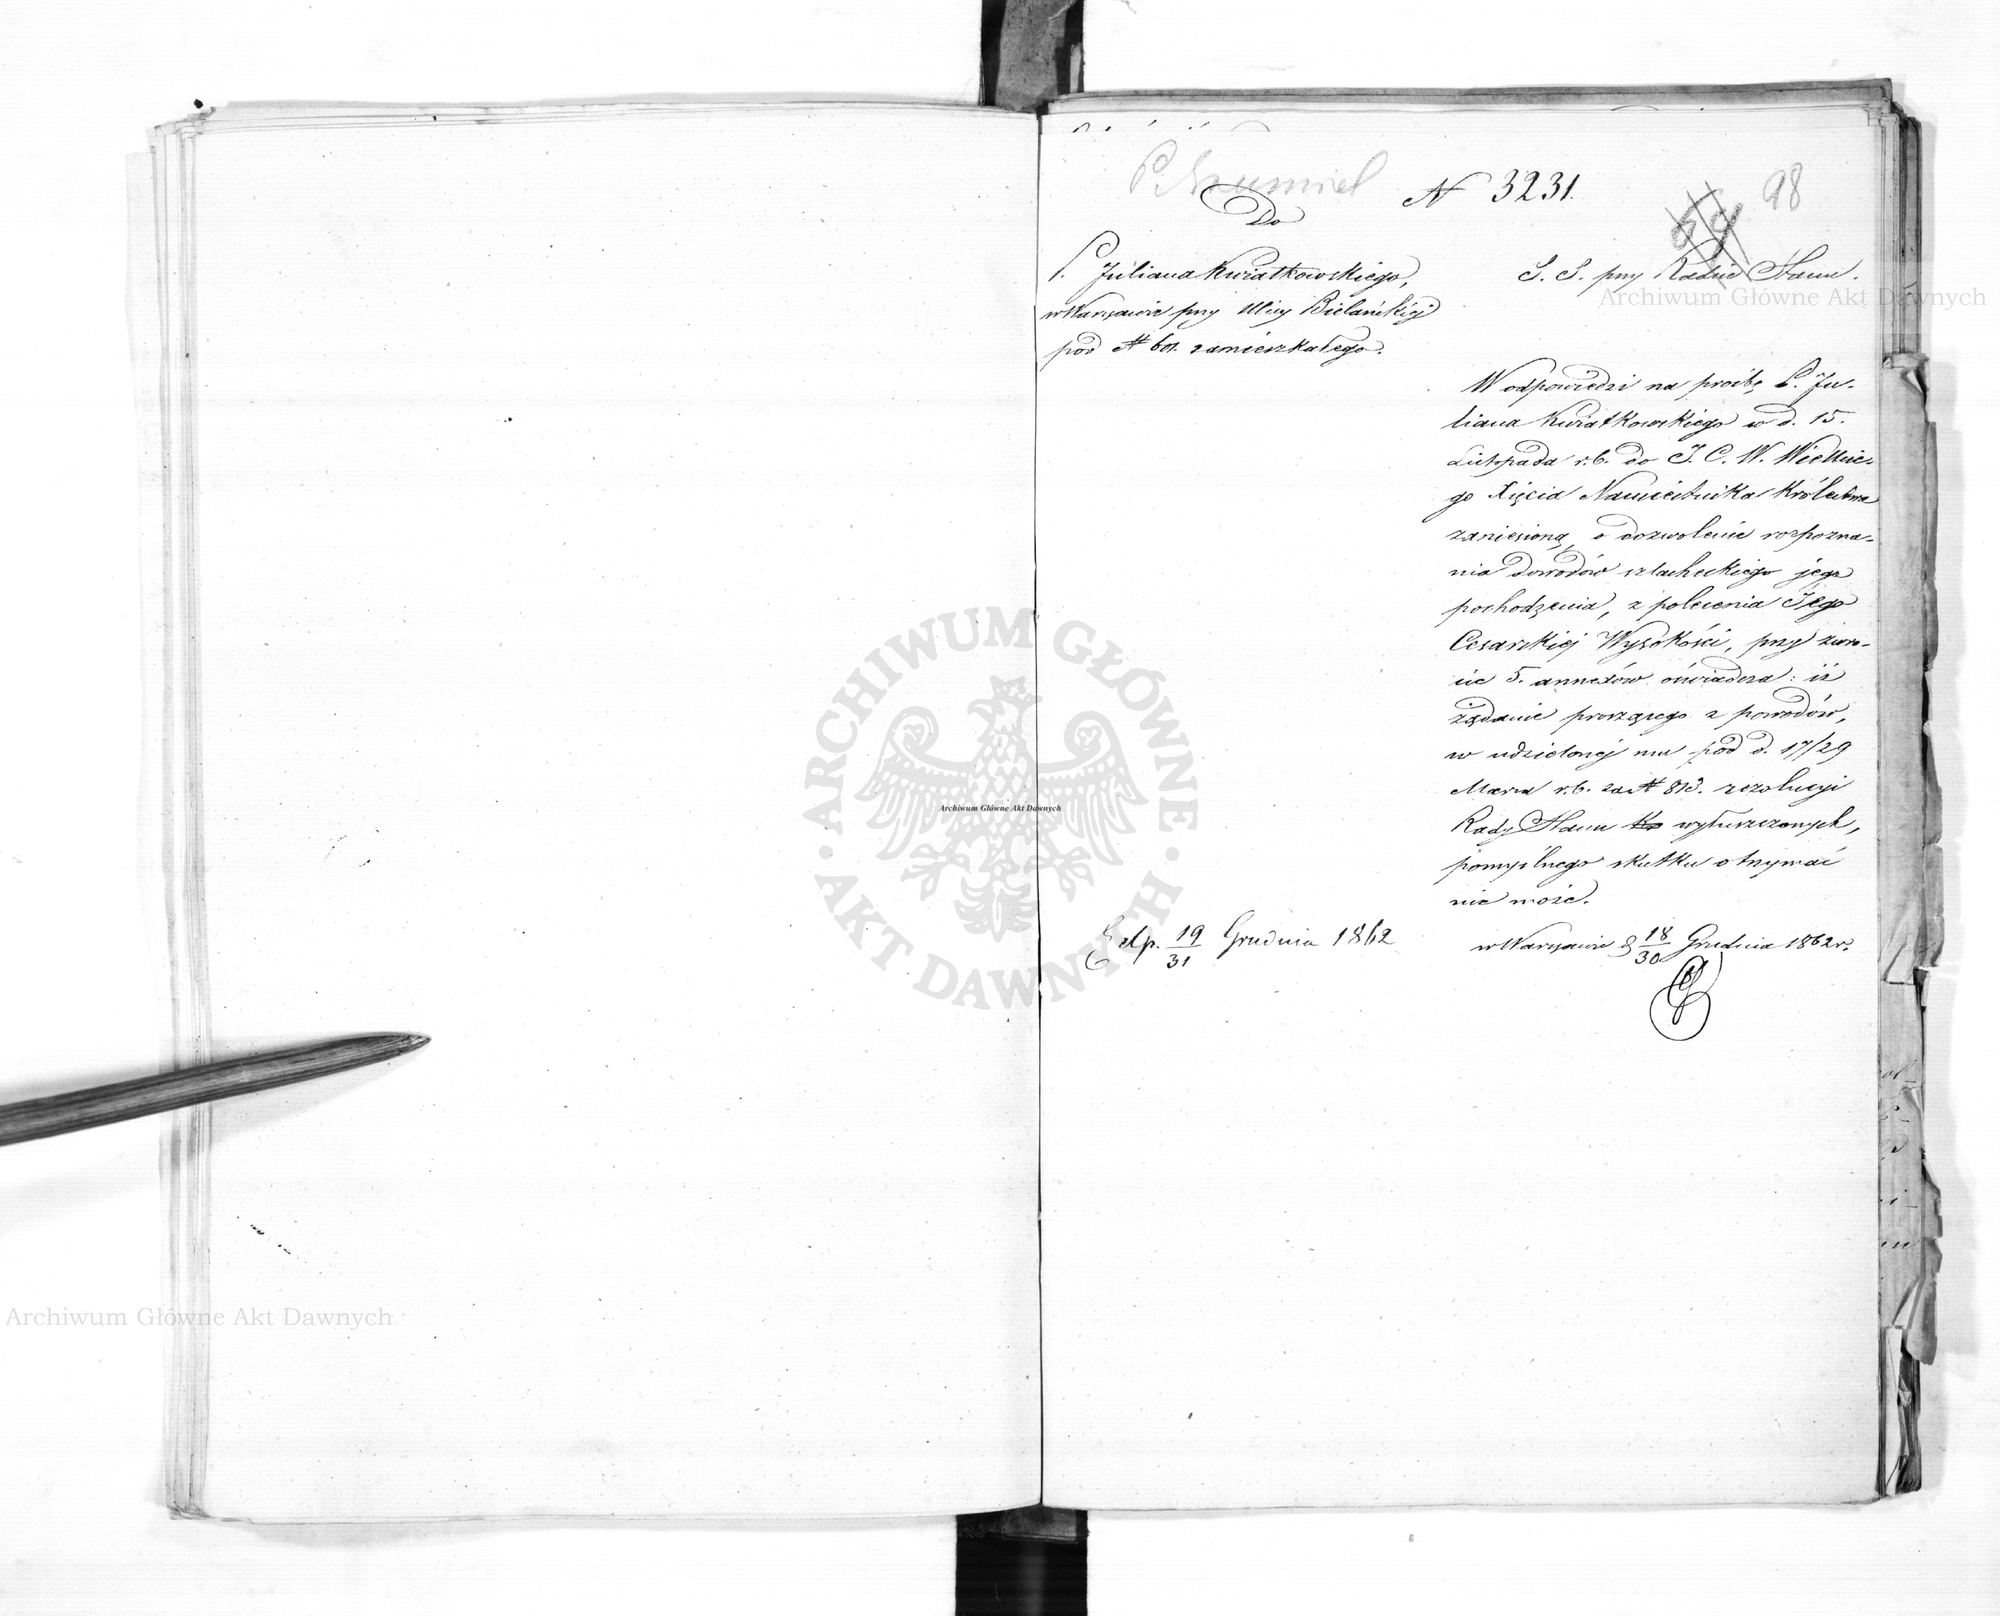 N 3231.
98
Do
P. Juliana Kwiatkowskiego,
w Warszawie przy Ulicy Bielańskiéj
pod N 601. zamieszkałego.
S. S. przy Radzie Stanu.
W odpowiedzi na prośbę P. Ju-
liana Kwiatkowskiego w d. 15.
Listopada r.b. do J. C. W. Wielkie-
go Xięcia Namiestnika Królestwa
zaniesioną, o dozwolenie rozpozna-
nia dowodów szlacheckiego jego
pochodzenia, z polecenia Jego
Cesarskiej Wysokości, przy zwro-
cie 5. annexów oświadcza: iż
żądanie proszącego z powodów,
w udzielonej mu pod d. 17/29
Marca r.b. za N 813. rezolucyi
Rady Stanu wyłuszczonych,
pomyślnego skutku otrzymać
nie może.
w Warszawie d 18/30 Grudnia 1862 r.
Exp. 19/31 Grudnia 1862
Archiwum Główne Akt Dawnych
ARCHIWUM GŁÓWNE · AKT DAWNYCH ·
Archiwum Główne Akt Dawnych
Archiwum Główne Akt Dawnych